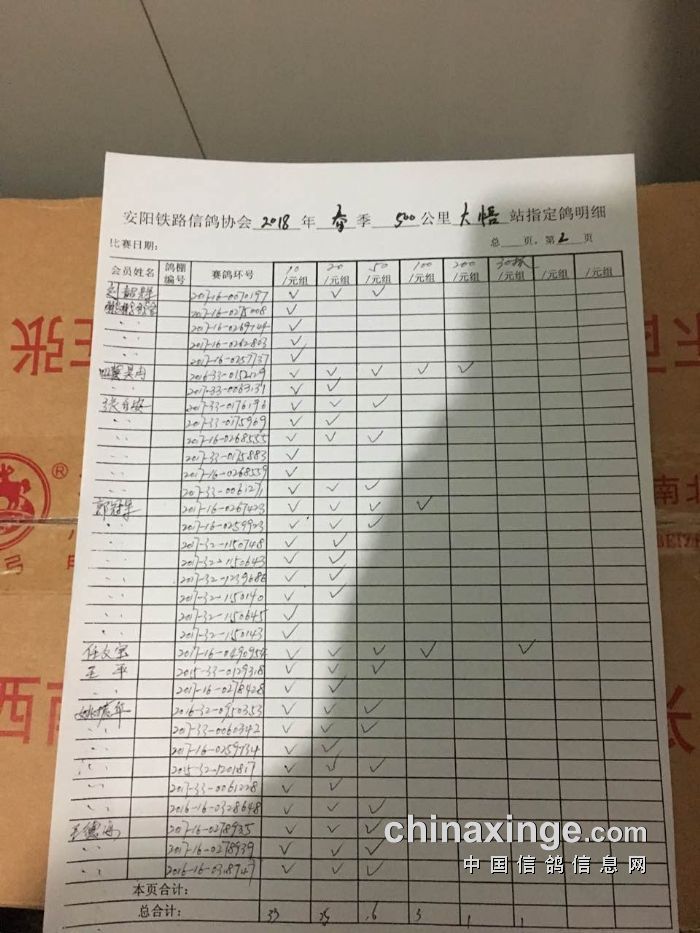 安阳铁路信鸽协会 2018 年 春 季 500 公里 大悟 站指定鸽明细
比赛日期: 总 页, 第 2 页
会员姓名 鸽棚编号 赛鸽环号 10/元组 20/元组 50/元组 100/元组 200/元组 /元组 /元组 /元组
2017-16-0070197 ✓ ✓ ✓
2017-16-0275008 ✓
〃 2017-16-0269144 ✓
〃 2017-16-0262803 ✓
〃 2017-16-0257737 ✓
2016-33-0152129 ✓ ✓ ✓ ✓ ✓
〃 2017-33-0063131 ✓ ✓
2017-33-0176196 ✓ ✓ ✓
〃 2017-33-0175969 ✓ ✓
〃 2017-16-0268555 ✓ ✓ ✓
〃 2017-33-0175883 ✓
〃 2017-16-0268559 ✓
〃 2017-33-0061271 ✓ ✓ ✓
2017-16-0267423 ✓ ✓ ✓ ✓
〃 2017-16-0259923 ✓ ✓ ✓
〃 2017-32-1150748 ✓ ✓
〃 2017-32-1150643 ✓ ✓
〃 2017-32-1239686 ✓ ✓
〃 2017-32-1150140 ✓ ✓
〃 2017-32-1150645 ✓
〃 2017-32-1150143 ✓
任文宝 2017-16-0490954 ✓ ✓ ✓ ✓ ✓
王平 2015-33-0129318 ✓ ✓ ✓
〃 2017-16-0278428 ✓ ✓
2016-32-0950353 ✓ ✓ ✓
〃 2017-33-0060342 ✓ ✓ ✓
〃 2017-16-0259734 ✓ ✓
〃 2015-32-1201817 ✓ ✓ ✓
〃 2017-33-0061228 ✓ ✓
〃 2016-16-0328648 ✓ ✓ ✓
王德海 2017-16-0278935 ✓ ✓ ✓
〃 2017-16-0278939 ✓ ✓ ✓
〃 2016-16-0318747 ✓ ✓ ✓
本页合计:
总合计: 33 1 1
chinaxinge.com
中国信鸽信息网